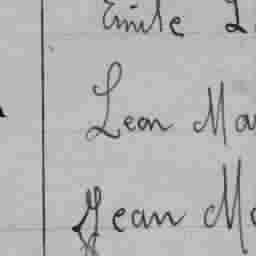 Emile L
Leon Ma
Jean Mo